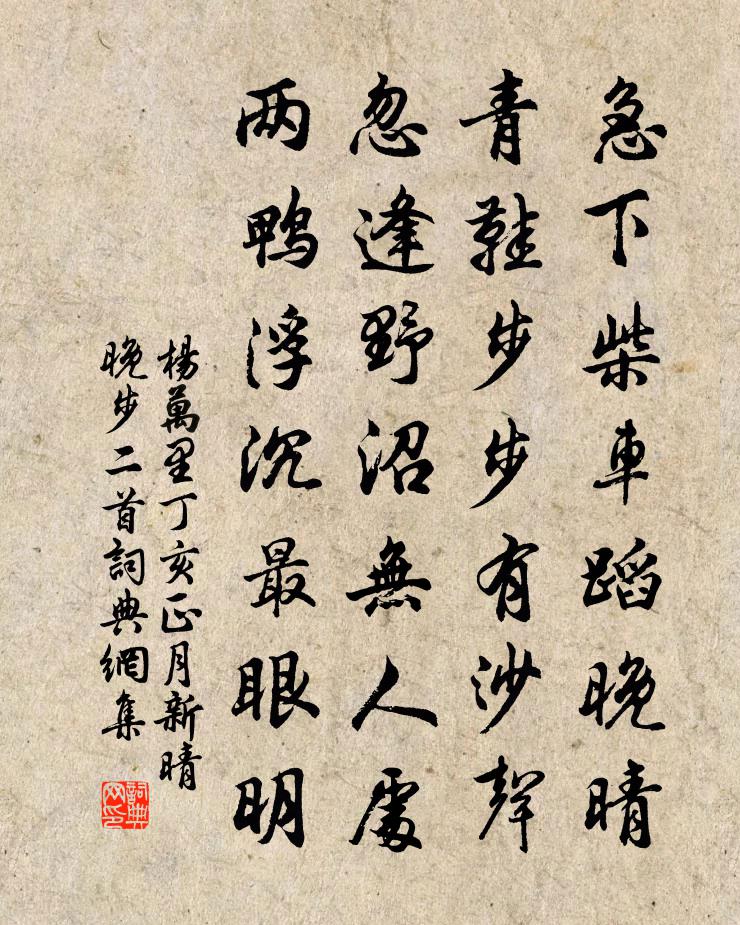 急下柴車蹈晚晴
青鞋步步有沙聲
忽逢野沼無人處
两鴨浮沉最眼明
楊萬里丁亥正月新晴
晚步二首詞典網集
詞典
网印